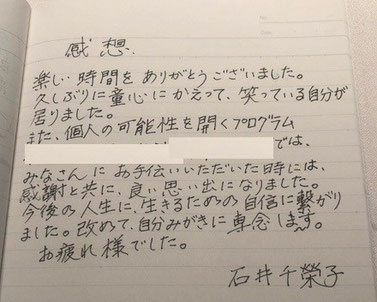 感想
楽しい時間をありがとうございました。
久しぶりに童心にかえって、笑っている自分が
居りました。
また、個人の可能性を開くプログラム
では、
みなさんにお手伝いいただいた時には、
感謝と共に、良い思い出になりました。
今後の人生に、生きるための自信に繋がり
ました。改めて、自分みがきに専念します。
お疲れ様でした。
石井千榮子